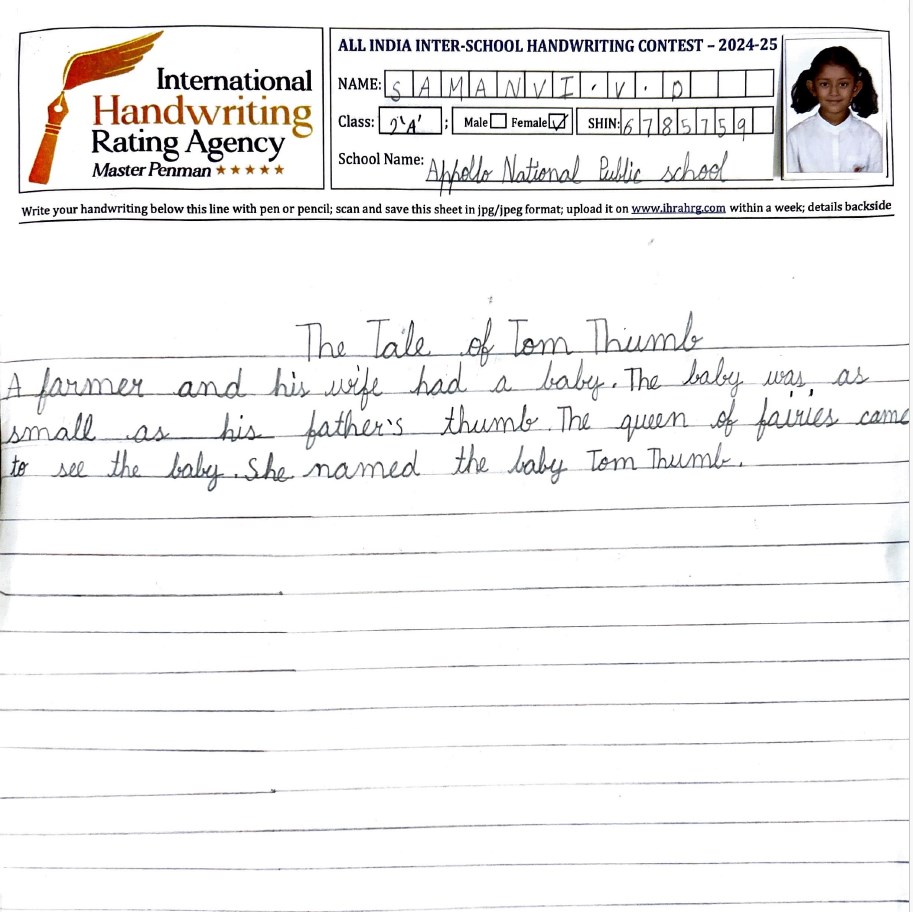 International
Handwriting
Rating Agency
Master Penman ★★★★★
ALL INDIA INTER-SCHOOL HANDWRITING CONTEST – 2024-25
NAME: SAMANVI.V.D
Class: 2'A' ; Male Female ✓ SHIN: 6785759
School Name: Appollo National Public school
Write your handwriting below this line with pen or pencil; scan and save this sheet in jpg/jpeg format; upload it on www.ihrahrg.com within a week; details backside
The Tale of Tom Thumb
A farmer and his wife had a baby. The baby was as
small as his father's thumb. The queen of fairies came
to see the baby. She named the baby Tom Thumb.